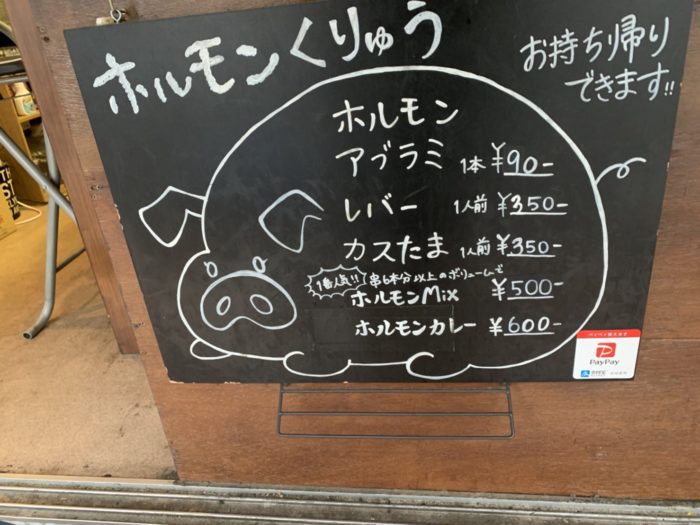 ホルモンくりゅう
お持ち帰り
できます!!
ホルモン
アブラミ 1本 ¥90-
レバー 1人前 ¥350-
カスたま 1人前 ¥350-
1番人気!! 串6本分以上のボリュームで
ホルモンMix ¥500-
ホルモンカレー ¥600-
PayPay